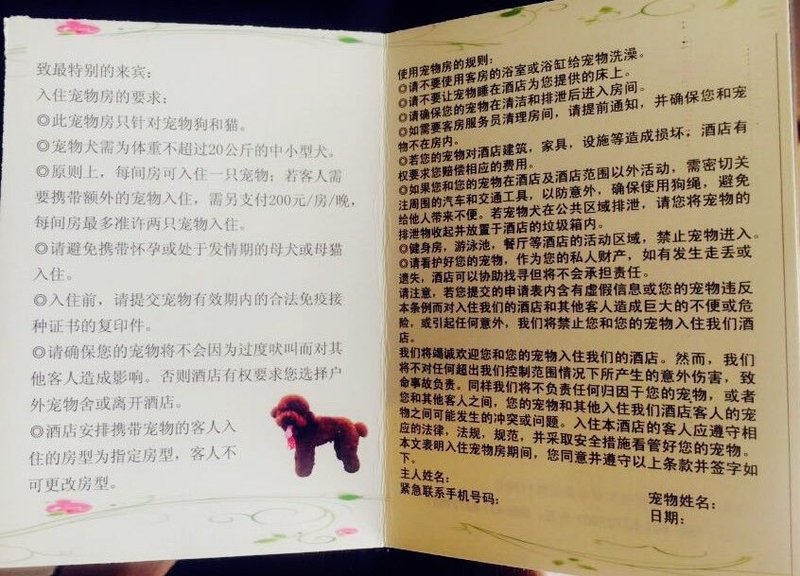 致最特别的来宾：
入住宠物房的要求：
◎此宠物房只针对宠物狗和猫。
◎宠物犬需为体重不超过20公斤的中小型犬。
◎原则上，每间房可入住一只宠物；若客人需
要携带额外的宠物入住，需另支付200元/房/晚，
每间房最多准许两只宠物入住。
◎请避免携带怀孕或处于发情期的母犬或母猫
入住。
◎入住前，请提交宠物有效期内的合法免疫接
种证书的复印件。
◎请确保您的宠物将不会因为过度吠叫而对其
他客人造成影响。否则酒店有权要求您选择户
外宠物舍或离开酒店。
◎酒店安排携带宠物的客人入
住的房型为指定房型，客人不
可更改房型。
使用宠物房的规则：
◎请不要使用客房的浴室或浴缸给宠物洗澡。
◎请不要让宠物睡在酒店为您提供的床上。
◎请确保您的宠物在清洁和排泄后进入房间。
◎如需要客房服务员清理房间，请提前通知，并确保您和宠
物不在房内。
◎若您的宠物对酒店建筑，家具，设施等造成损坏，酒店有
权要求您赔偿相应的费用。
◎如果您和您的宠物在酒店及酒店范围以外活动，需密切关
注周围的汽车和交通工具，以防意外，确保使用狗绳，避免
给他人带来不便。若宠物犬在公共区域排泄，请您将宠物的
排泄物收起并放置于酒店的垃圾箱内。
◎健身房，游泳池，餐厅等酒店的活动区域，禁止宠物进入。
◎请看护好您的宠物，作为您的私人财产，如有发生走丢或
遗失，酒店可以协助找寻但将不会承担责任。
请注意，若您提交的申请表内含有虚假信息或您的宠物违反
本条例而对入住我们的酒店和其他客人造成巨大的不便或危
险，或引起任何意外，我们将禁止您和您的宠物入住我们酒
店。
我们将竭诚欢迎您和您的宠物入住我们的酒店。然而，我们
将不对任何超出我们控制范围情况下所产生的意外伤害，致
命事故负责。同样我们将不负责任何归因于您的宠物，或者
您和其他客人之间，您的宠物和其他入住我们酒店客人的宠
物之间可能发生的冲突或问题。入住本酒店的客人应遵守相
应的法律，法规，规范，并采取安全措施看管好您的宠物。
本文表明入住宠物房期间，您同意并遵守以上条款并签字如
下。
主人姓名： 宠物姓名：
紧急联系手机号码： 日期：